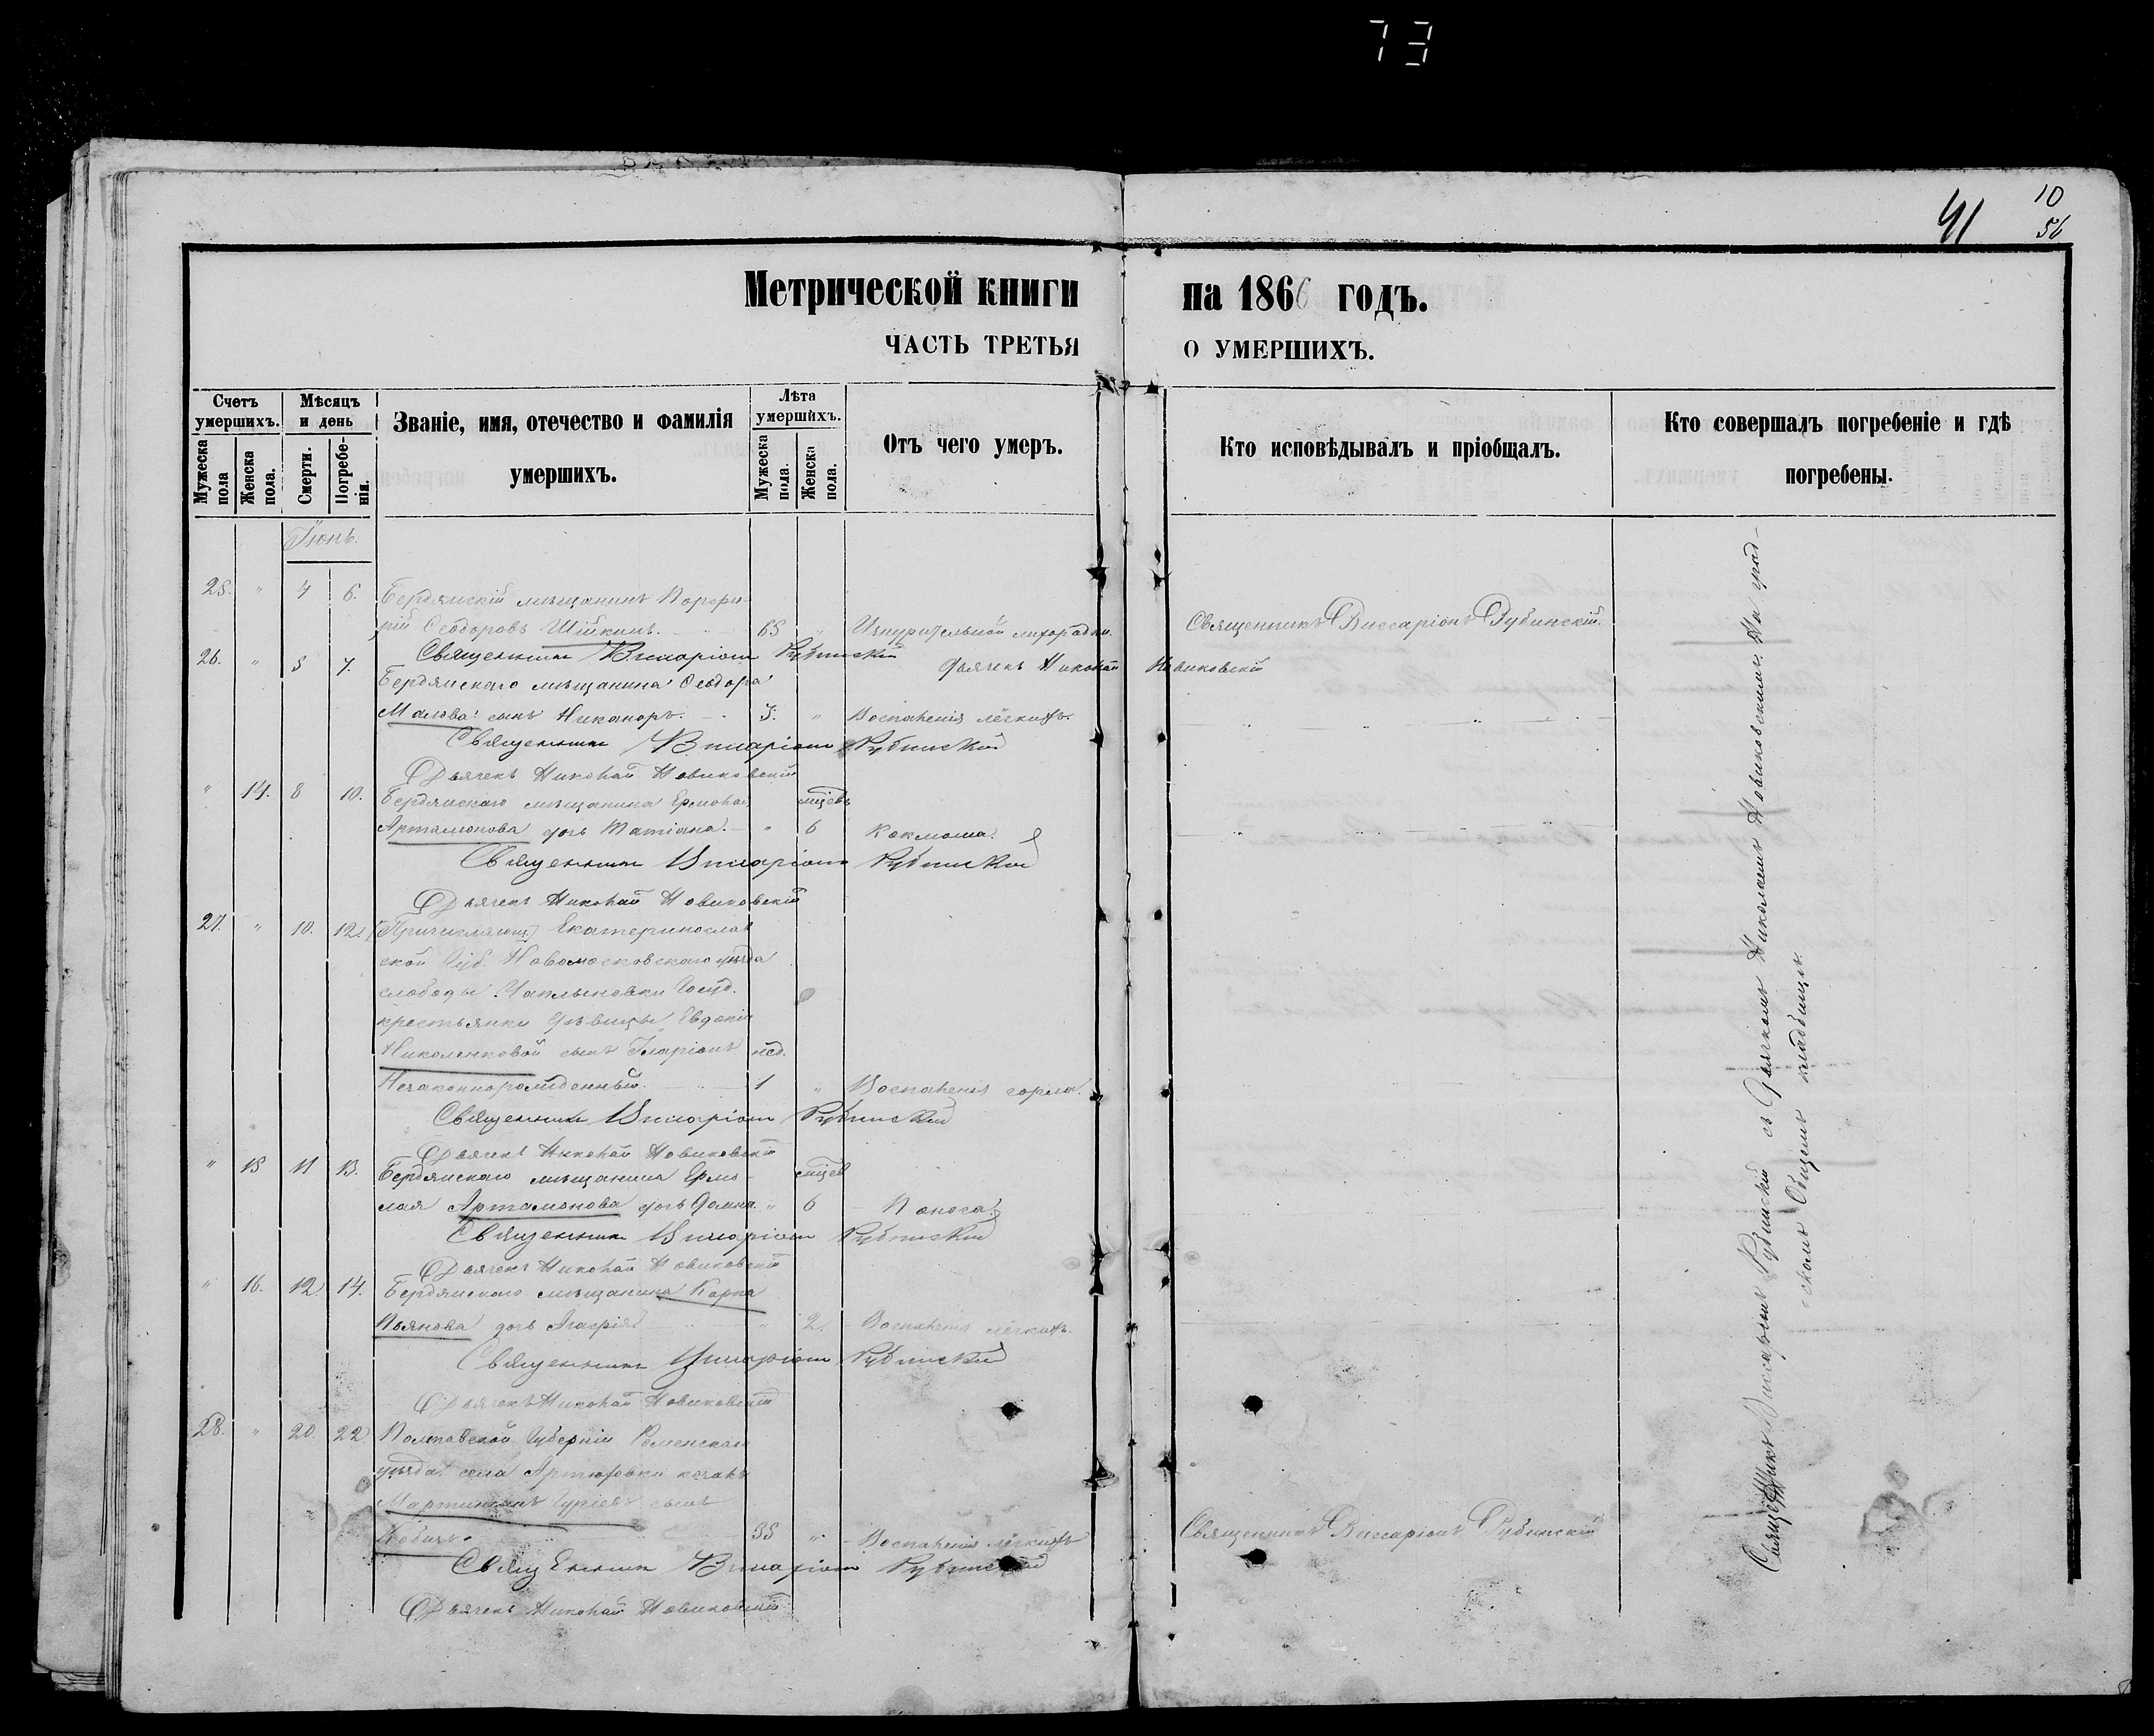 73
41
10
56
Метрической книги на 1866 годъ.
ЧАСТЬ ТРЕТЬЯ О УМЕРШИХЪ.
Счетъ умершихъ.
Мужеска пола
Женска пола.
Мѣсяцъ и день
Смерти.
Погребенія.
Званіе, имя, отечество и фамилія умершихъ.
Лѣта умершихъ.
Мужеска пола.
Женска пола.
Отъ чего умеръ.
Кто исповѣдывалъ и пріобщалъ.
Кто совершалъ погребеніе и гдѣ погребены.
Іюнь.
25. " 4 6. Бердянскій мѣщанинъ Порфи-
рій Ѳеодоровъ Шійкинъ. 65 " Изнурительной лихорадки. Священникъ Виссаріонъ Рубинскій.
Священникъ Виссаріонъ Рубинскій
Дьячекъ Николай Новиковскій
26. " 5 7. Бердянскаго мѣщанина Ѳеодора
Малова сынъ Никаноръ. 3. " Воспаленія лёгкихъ.
Священникъ Виссаріонъ Рубинскій
Дьячекъ Николай Новиковскій
" 14. 8 10. Бердянскаго мѣщанина Ермолая мцевъ
Артамонова дочь Татіана. " 6 Коклюша.
Священникъ Виссаріонъ Рубинскій
Дьячекъ Николай Новиковскій
27. " 10. 12. Екатеринослав
ской Губ. Новомосковскаго уѣзда
слободы Чаплыновки Госуд.
крестьянки дѣвицы Евдокіи
Николенковой сынъ Иларіонъ нед.
Незаконнорожденный. 1 " Воспаленія горла.
Священникъ Виссаріонъ Рубинскій
Дьячекъ Николай Новиковскій
" 15 11 13. Бердянскаго мѣщанина Ермо- мцев
лая Артамонова дочь Домна. " 6 Поноса.
Священникъ Виссаріонъ Рубинскій
Дьячекъ Николай Новиковскій
" 16. 12 14. Бердянскаго мѣщанина Карпа
Пьянова дочь Агафія. " 2. Воспаленія лёгкихъ.
Священникъ Виссаріонъ Рубинскій
Дьячекъ Николай Новиковскій
28. " 20. 22 Полтавской Губерніи Роменскаго
уѣзда села Артюховки козакъ
Мартиніанъ Гуріевъ сынъ
35 " Воспаленія лёгкихъ Священникъ Виссаріонъ Рубинскій
Священникъ Виссаріонъ Рубинскій
Дьячекъ Николай Новиковскій
Священникъ Виссаріонъ Рубинскій съ Дьячкомъ Николаемъ Новиковскимъ. На град-
скомъ Общемъ кладбищѣ.